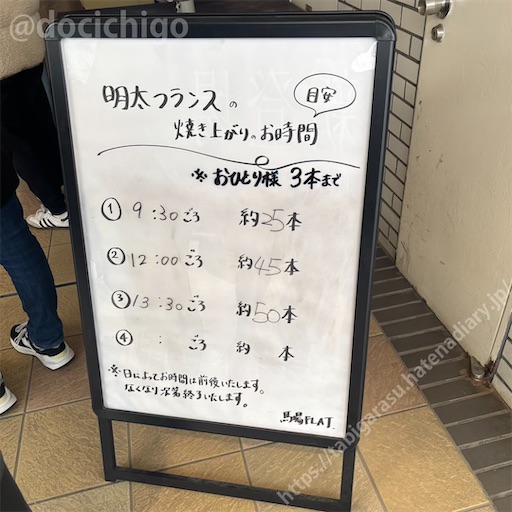 @docichigo
明太フランスの
目安
焼き上がりのお時間
※ おひとり様 3本まで
① 9:30ごろ 約25本
② 12:00ごろ 約45本
③ 13:30ごろ 約50本
④ : ごろ 約 本
※日によってお時間は前後いたします。
なくなり次第終了いたします。
馬場FLAT
https://tabigarasu.hatenadiary.jp/